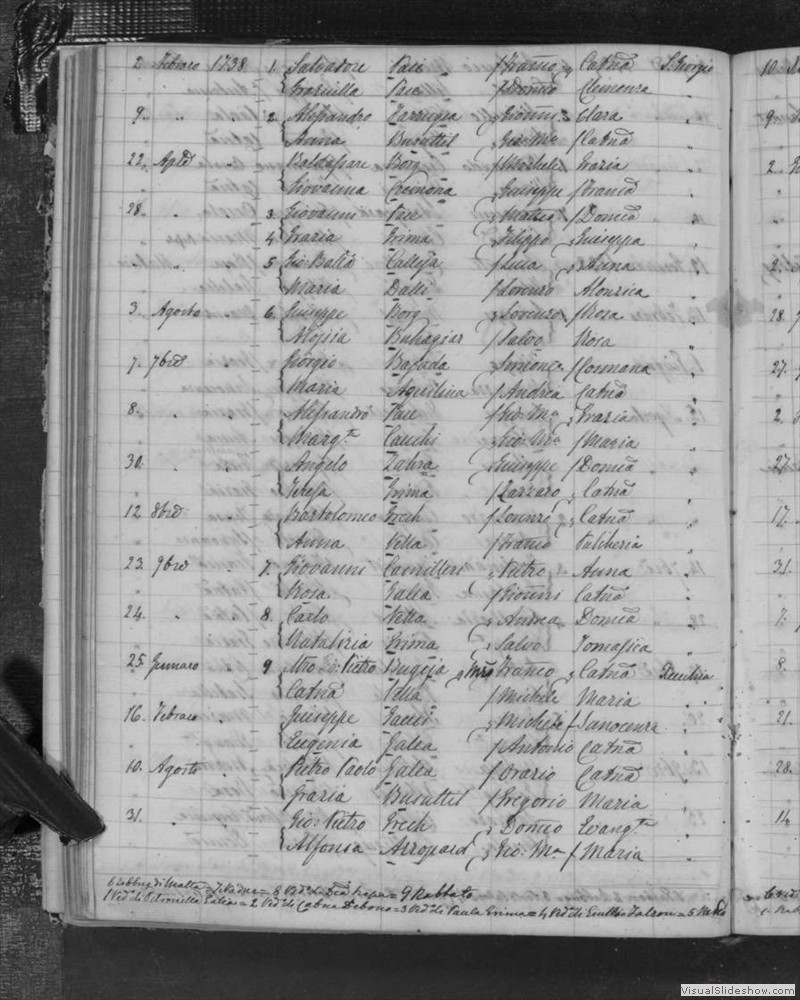 2. Febraro 1738. 1. Salvadore Pace / Franco Catna S. Giorgio
Graziella Pace / Domco Clemenza
9. " " 2. Alessandro Zarruga Gionni Clara
Anna Busuttil Gio: Ma / Catna
22. Aple Baldassare Borg / Michele Grazia
Giovanna Cremona Giuseppe / Franca
28. 3. Giovanni Pace Matteo / Domca
4. Grazia Grima Filippo Giuseppa
5 Gio Batta Calleja / Luca Anna
Maria Dalli / Lorenzo Alonzica
3. Agosto 6. Giuseppe Borg Lorenzo / Rosa
Aloisia Buhagiar / Salvo Rosa
7. 7bre Giorgio Bajada Simone / Cosmana
Maria Aquilina / Andrea Catna
8. Alessandro Pace / Gio: Ma Grazia
Margta Cauchi Gio: Ma / Maria
30. Angelo Zahra Giuseppe / Domca
Teresa Grima / Lazzaro Catna
12 8bre Bartolomeo Grech / Lorenzo Catna
Anna Vella / Franco Pulcheria
23. 9bre 7. Giovanni Camilleri Pietro Anna
Rosa Galea / Gionni Catna
24. 8. Carlo Vella Andrea Domca
Natalizia Grima Salvo Tomasica
25. Gennaro 9 Mro Gio: Pietro Bugeja Mro Franco Catna
Catna Vella / Michele Maria
16. Febraro Giuseppe Gauci Michele / Innocenza
Eugenia Galea / Antonio Catna
10. Agosto Pietro Paolo Galea / Orazio Catna
Grazia Busuttil / Gregorio Maria
31. Gio: Pietro Grech Domco Evangta
Alfonsa Azzopard Gio: Ma / Maria
= 9 Rabbato
1 Ved. di Petronilla Galea = 2 Ved. di Catna Debono = 3 Ved. di Paula Grima = 4 Ved. di
10.
9.
2.
2.
28.
27.
2.
27.
17.
31.
7.
8.
21.
28.
14.
VisualSlideshow.com